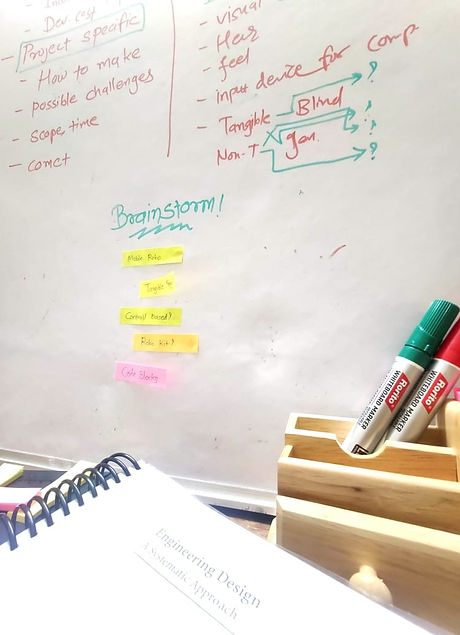 - Dev cost
- Project specific
- How to make
- possible challenges
- scope, time
- comct
- visual
- Hear
- feel
- input device for comp
- Tangible
Blind
?
?
?
?
Non-T
gen.
Brainstorm!
Mobile Robo
Tangible
Control based?
Robo Kit?
Code Blocks
Rorito
WHITEBOARD MARKER
Rorito
WHITEBOARD MARKER
Engineering Design
A Systematic Approach